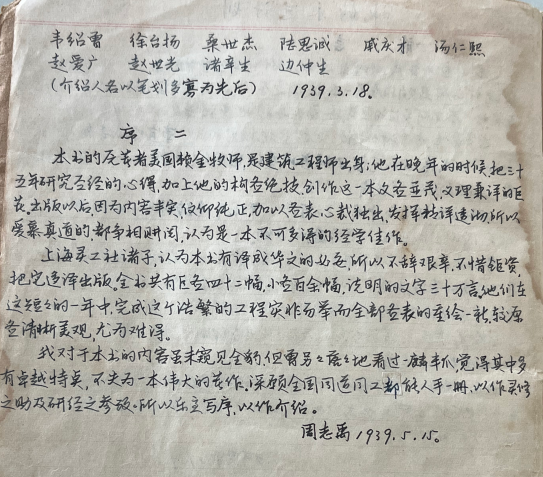 韦绍曾 徐台扬 桑世杰 陆思诚 戚庆才 汤仁熙
赵爱广 赵世光 诸辛生 边仲生
(介绍人名以笔划多寡为先后) 1939.3.18。
序 二
本书的原著者美国赖金牧师,是建筑工程师出身;他在晚年的时候把三十
五年研究圣经的心得,加上他的构图绝技,创作这一本文图并茂,义理兼详的巨
著,出版以后,因为内容丰实,信仰纯正,加以图表,心裁独出,发挥精详透沏,所以
爱慕真道的都争相购阅,认为是一本不可多得的经学佳作。
上海灵工社诸子,认为本书有译成华文的必要,所以不辞艰辛,不惜钜资,
把它迻译出版,全书共有巨图四十二幅,小图百余幅,说明的文字三十万言,他们在
这短短的一年中,完成这个浩繁的工程实非易举而全部图表的重绘一新,较原
图清晰美观,尤为难得。
我对于本书的内容虽未窥见全豹,但曾另々度々地看过一鳞半爪,觉得其中多
有卓越特点,不失为一本伟大的著作,深愿全国同道同工都能人手一册,以作灵修
之助及研经之参考。所以乐立写序,以作介绍。
周志禹 1939.5.15。